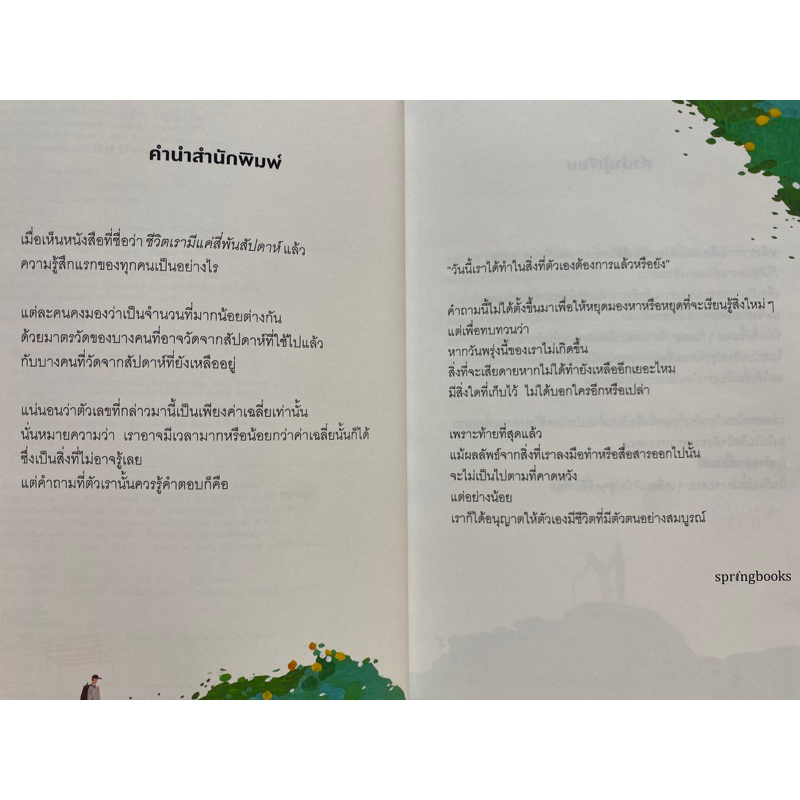 คำนำสำนักพิมพ์
เมื่อเห็นหนังสือที่ชื่อว่า ชีวิตเรามีแค่สี่พันสัปดาห์ แล้ว
ความรู้สึกแรกของทุกคนเป็นอย่างไร
แต่ละคนคงมองว่าเป็นจำนวนที่มากน้อยต่างกัน
ด้วยมาตรวัดของบางคนที่อาจวัดจากสัปดาห์ที่ใช้ไปแล้ว
กับบางคนที่วัดจากสัปดาห์ที่ยังเหลืออยู่
แน่นอนว่าตัวเลขที่กล่าวมานี้เป็นเพียงค่าเฉลี่ยเท่านั้น
นั่นหมายความว่า เราอาจมีเวลามากหรือน้อยกว่าค่าเฉลี่ยนั้นก็ได้
ซึ่งเป็นสิ่งที่ไม่อาจรู้เลย
แต่คำถามที่ตัวเรานั้นควรรู้คำตอบก็คือ
"วันนี้เราได้ทำในสิ่งที่ตัวเองต้องการแล้วหรือยัง"
คำถามนี้ไม่ได้ตั้งขึ้นมาเพื่อให้หยุดมองหาหรือหยุดที่จะเรียนรู้สิ่งใหม่ๆ
แต่เพื่อทบทวนว่า
หากวันพรุ่งนี้ของเราไม่เกิดขึ้น
สิ่งที่จะเสียดายหากไม่ได้ทำยังเหลืออีกเยอะไหม
มีสิ่งใดที่เก็บไว้ ไม่ได้บอกใครอีกหรือเปล่า
เพราะท้ายที่สุดแล้ว
แม้ผลลัพธ์จากสิ่งที่เราลงมือทำหรือสื่อสารออกไปนั้น
จะไม่เป็นไปตามที่คาดหวัง
แต่อย่างน้อย
เราก็ได้อนุญาตให้ตัวเองมีชีวิตที่มีตัวตนอย่างสมบูรณ์
springbooks